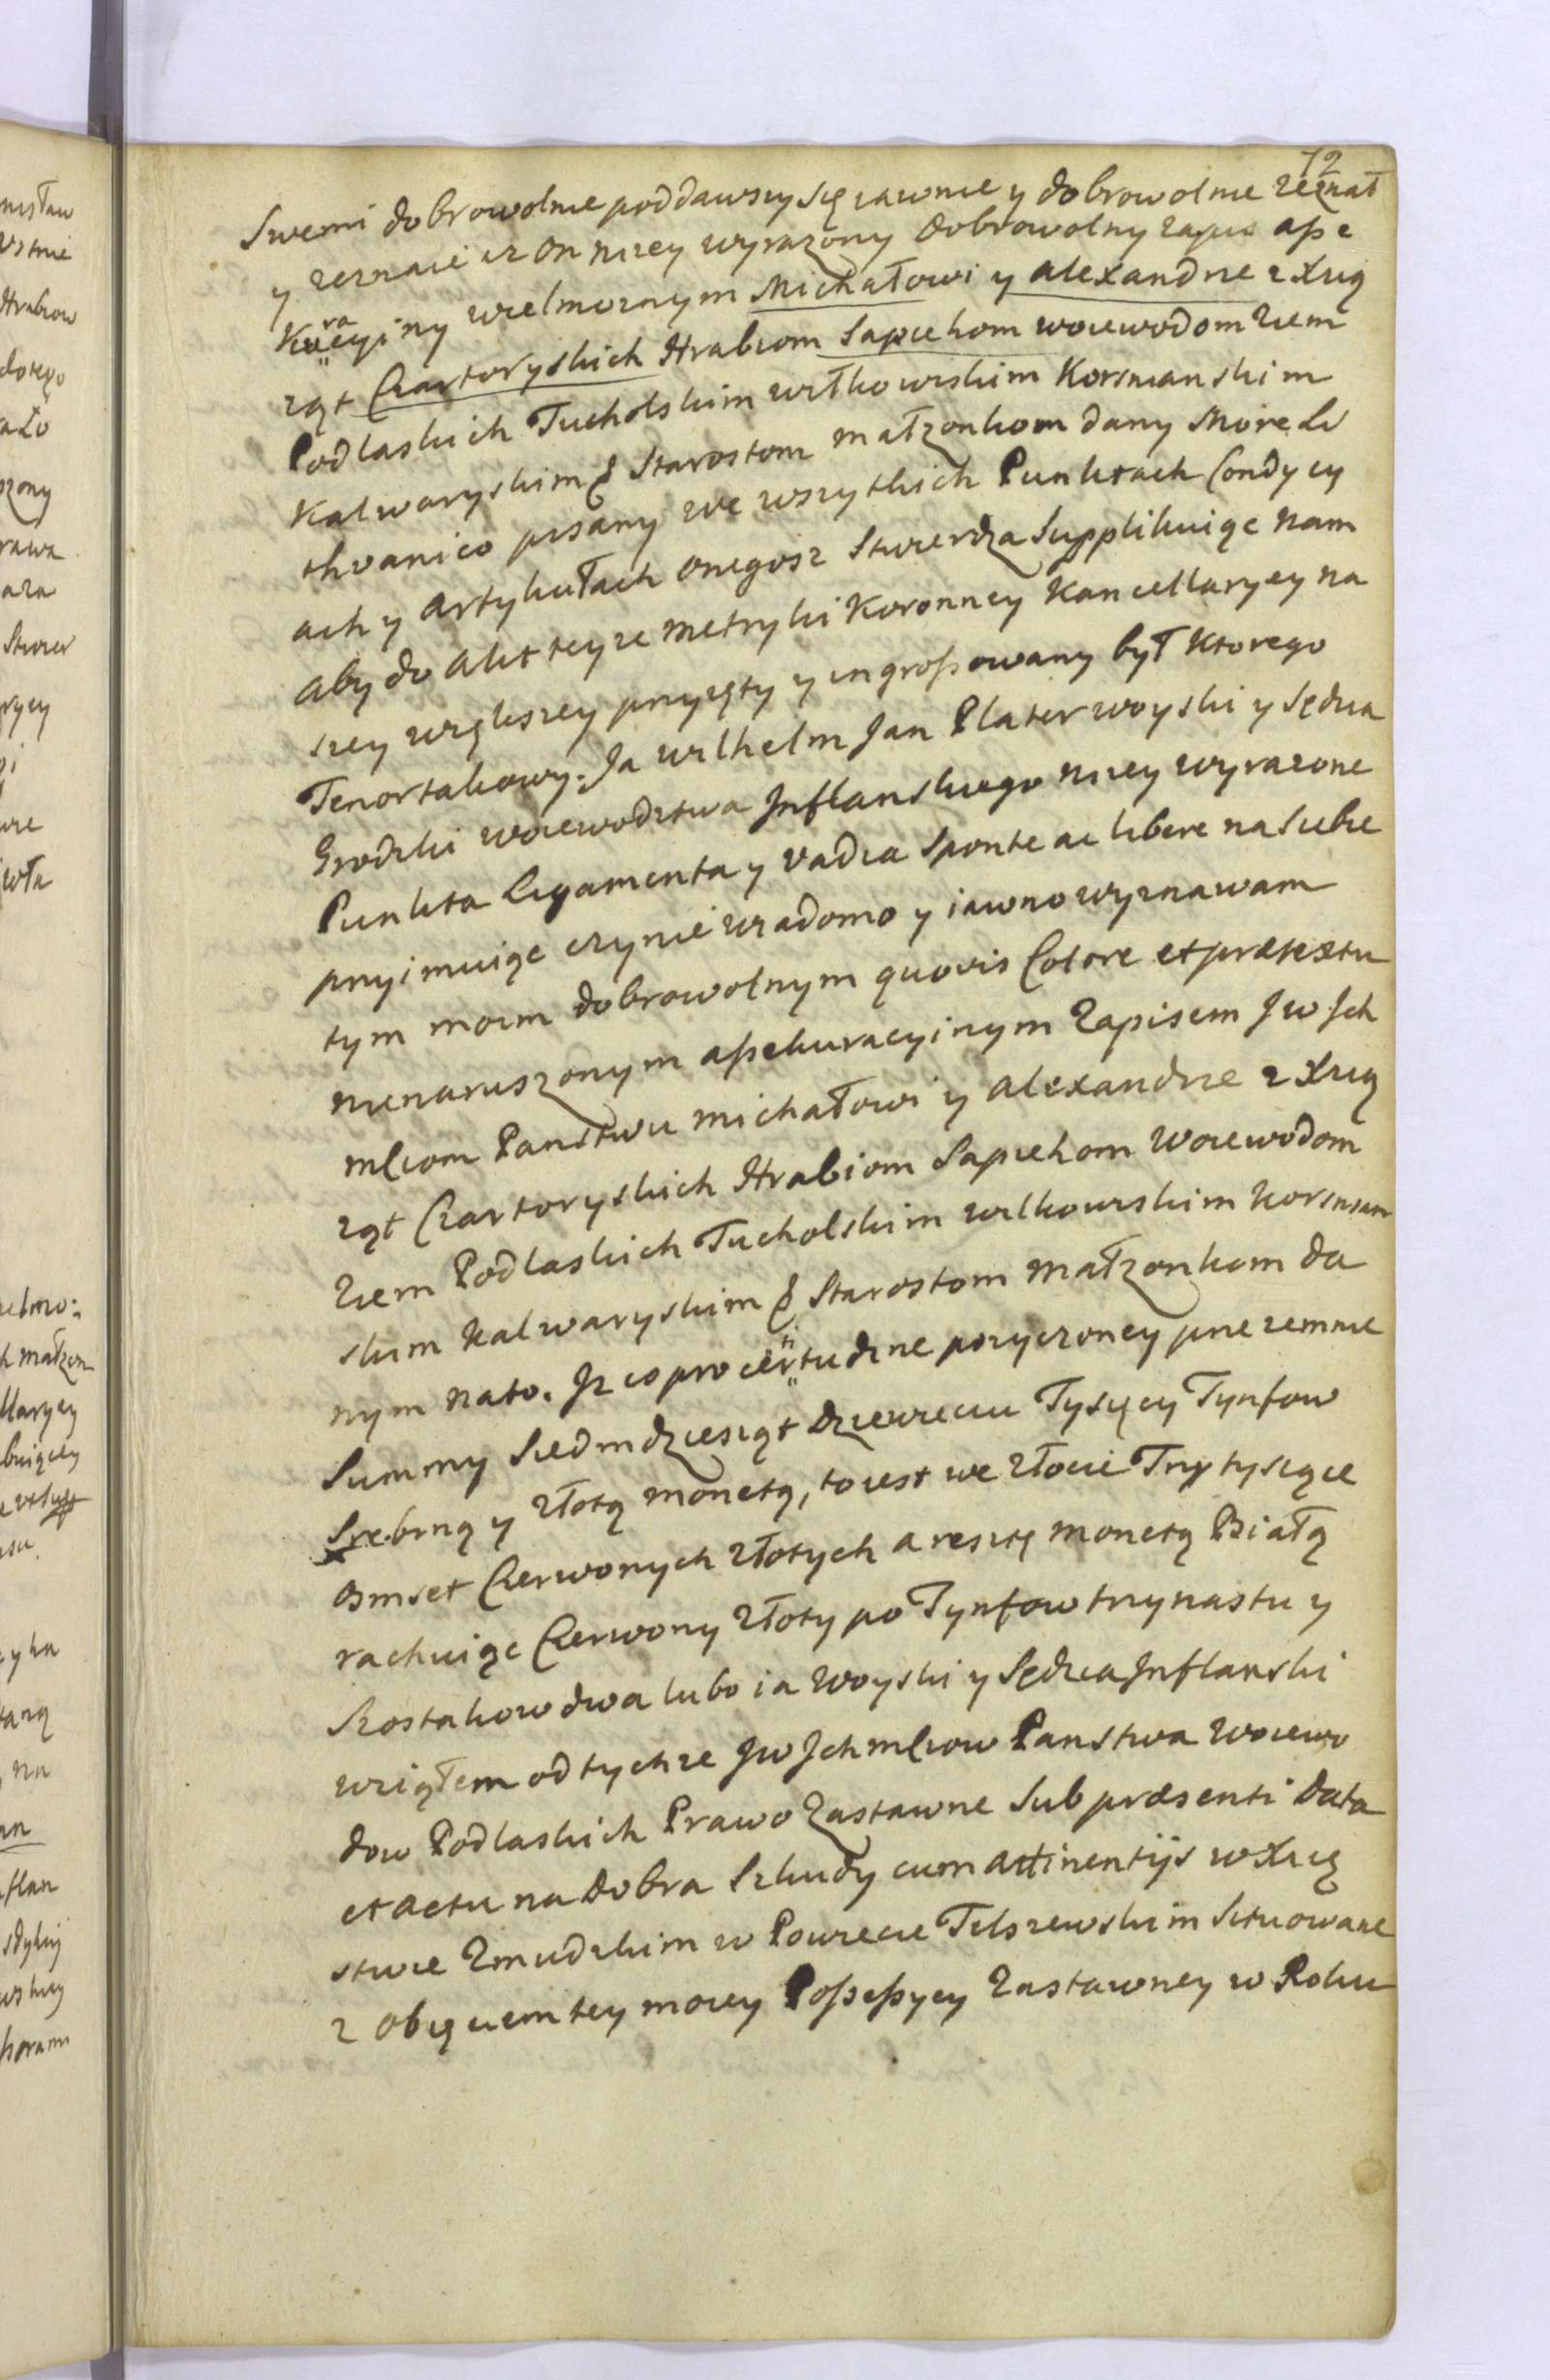 72
Swemi dobrowolnie poddawszy się iawnie y dobrowolnie zeznał
y zeznaie iz On nizey wyrazony Dobrowolny zapis asse
Kuracyiny wielmoznym Michałowi y Alexandrze z Xiią
ząt Czartoryskich Hrabiom Sapiehom woiewodom Ziem
Podlaskich Tucholskim wilkowiskim Korsnianskim
Kalwaryskim & Starostom małzonkom dany More Li
thvanico pisany we wszytkich Punktach Condycy
ach y Artykułach onegosz Stwierdza Supplikuiąc nam
aby do Akt teyze Metryki Koronney Kancellaryey na
szey większey przyięty y ingrossowany był Ktorego
Tenor takowy. Ja wilhelm Jan Plater woyski y Sędzia
Grodzki woiewodztwa Inflanskiego nizey wyrazone
Punkta Ligamenta y vadia Sponte ac libere na Siebie
przyimuiąc czynie wiadomo y iawno wyznawam
tym moim dobrowolnym quovis Colore et prætextu
nienaruszonym assekuracyinym Zapisem Jw Ich
mlciom Panstwu Michałowi y Alexandrze z Xiią
ząt Czartoryskich Hrabiom Sapiehom Woiewodom
Ziem Podlaskich Tucholskim wilkowiskim Korsnian
skim Kalwaryskim & Starostom Małzonkom da
nym na to. Iz co pro certitudine pozyczoney przezemnie
Summy Siedmdziesiąt Dziewieciu Tysięcy Tynfow
Srebrną y złotą monetą, to iest we złocie Trzy tysiące
osmset Czerwonych złotych a resztę monetą Białą
rachuiąc Czerwony złoty po Tynfow trzynastu y
Szostakow dwa lubo ia Woyski y Sędzia Inflanski
wziąłem od tychze Jw Ichmlciow Panstwa Woiewo
dow Podlaskich Prawo Zastawne Sub præsenti Data
et actu na Dobra Szkudy cum attinentijs w Xię
stwie Zmudzkim w Powiecie Telszewskim Situowane
z obięciem tey moiey Possessyey Zastawney w Roku